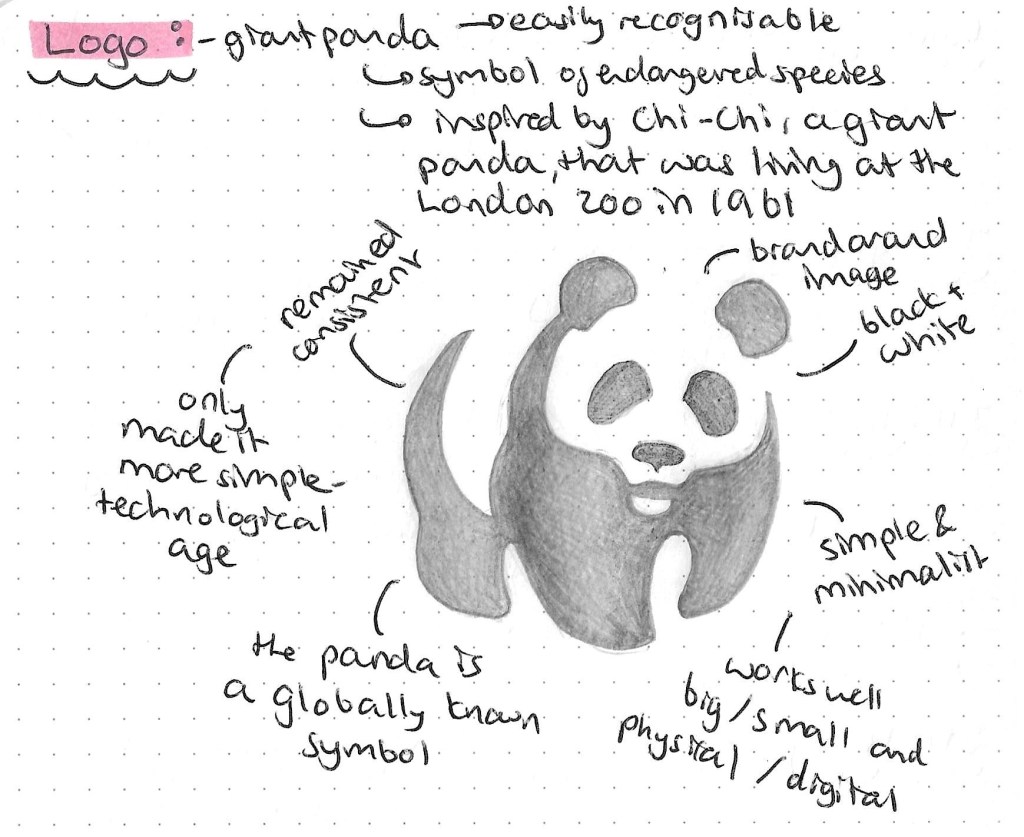 Logo : - giant panda → easily recognisable
↳ symbol of endangered species
↳ inspired by Chi-Chi, a giant
panda, that was living at the
London Zoo in 1961
remained
consistent
brand
image
black +
white
only
made it
more simple -
technological
age
simple &
minimalist
the panda is
a globally known
symbol
works well
big / small and
physical / digital